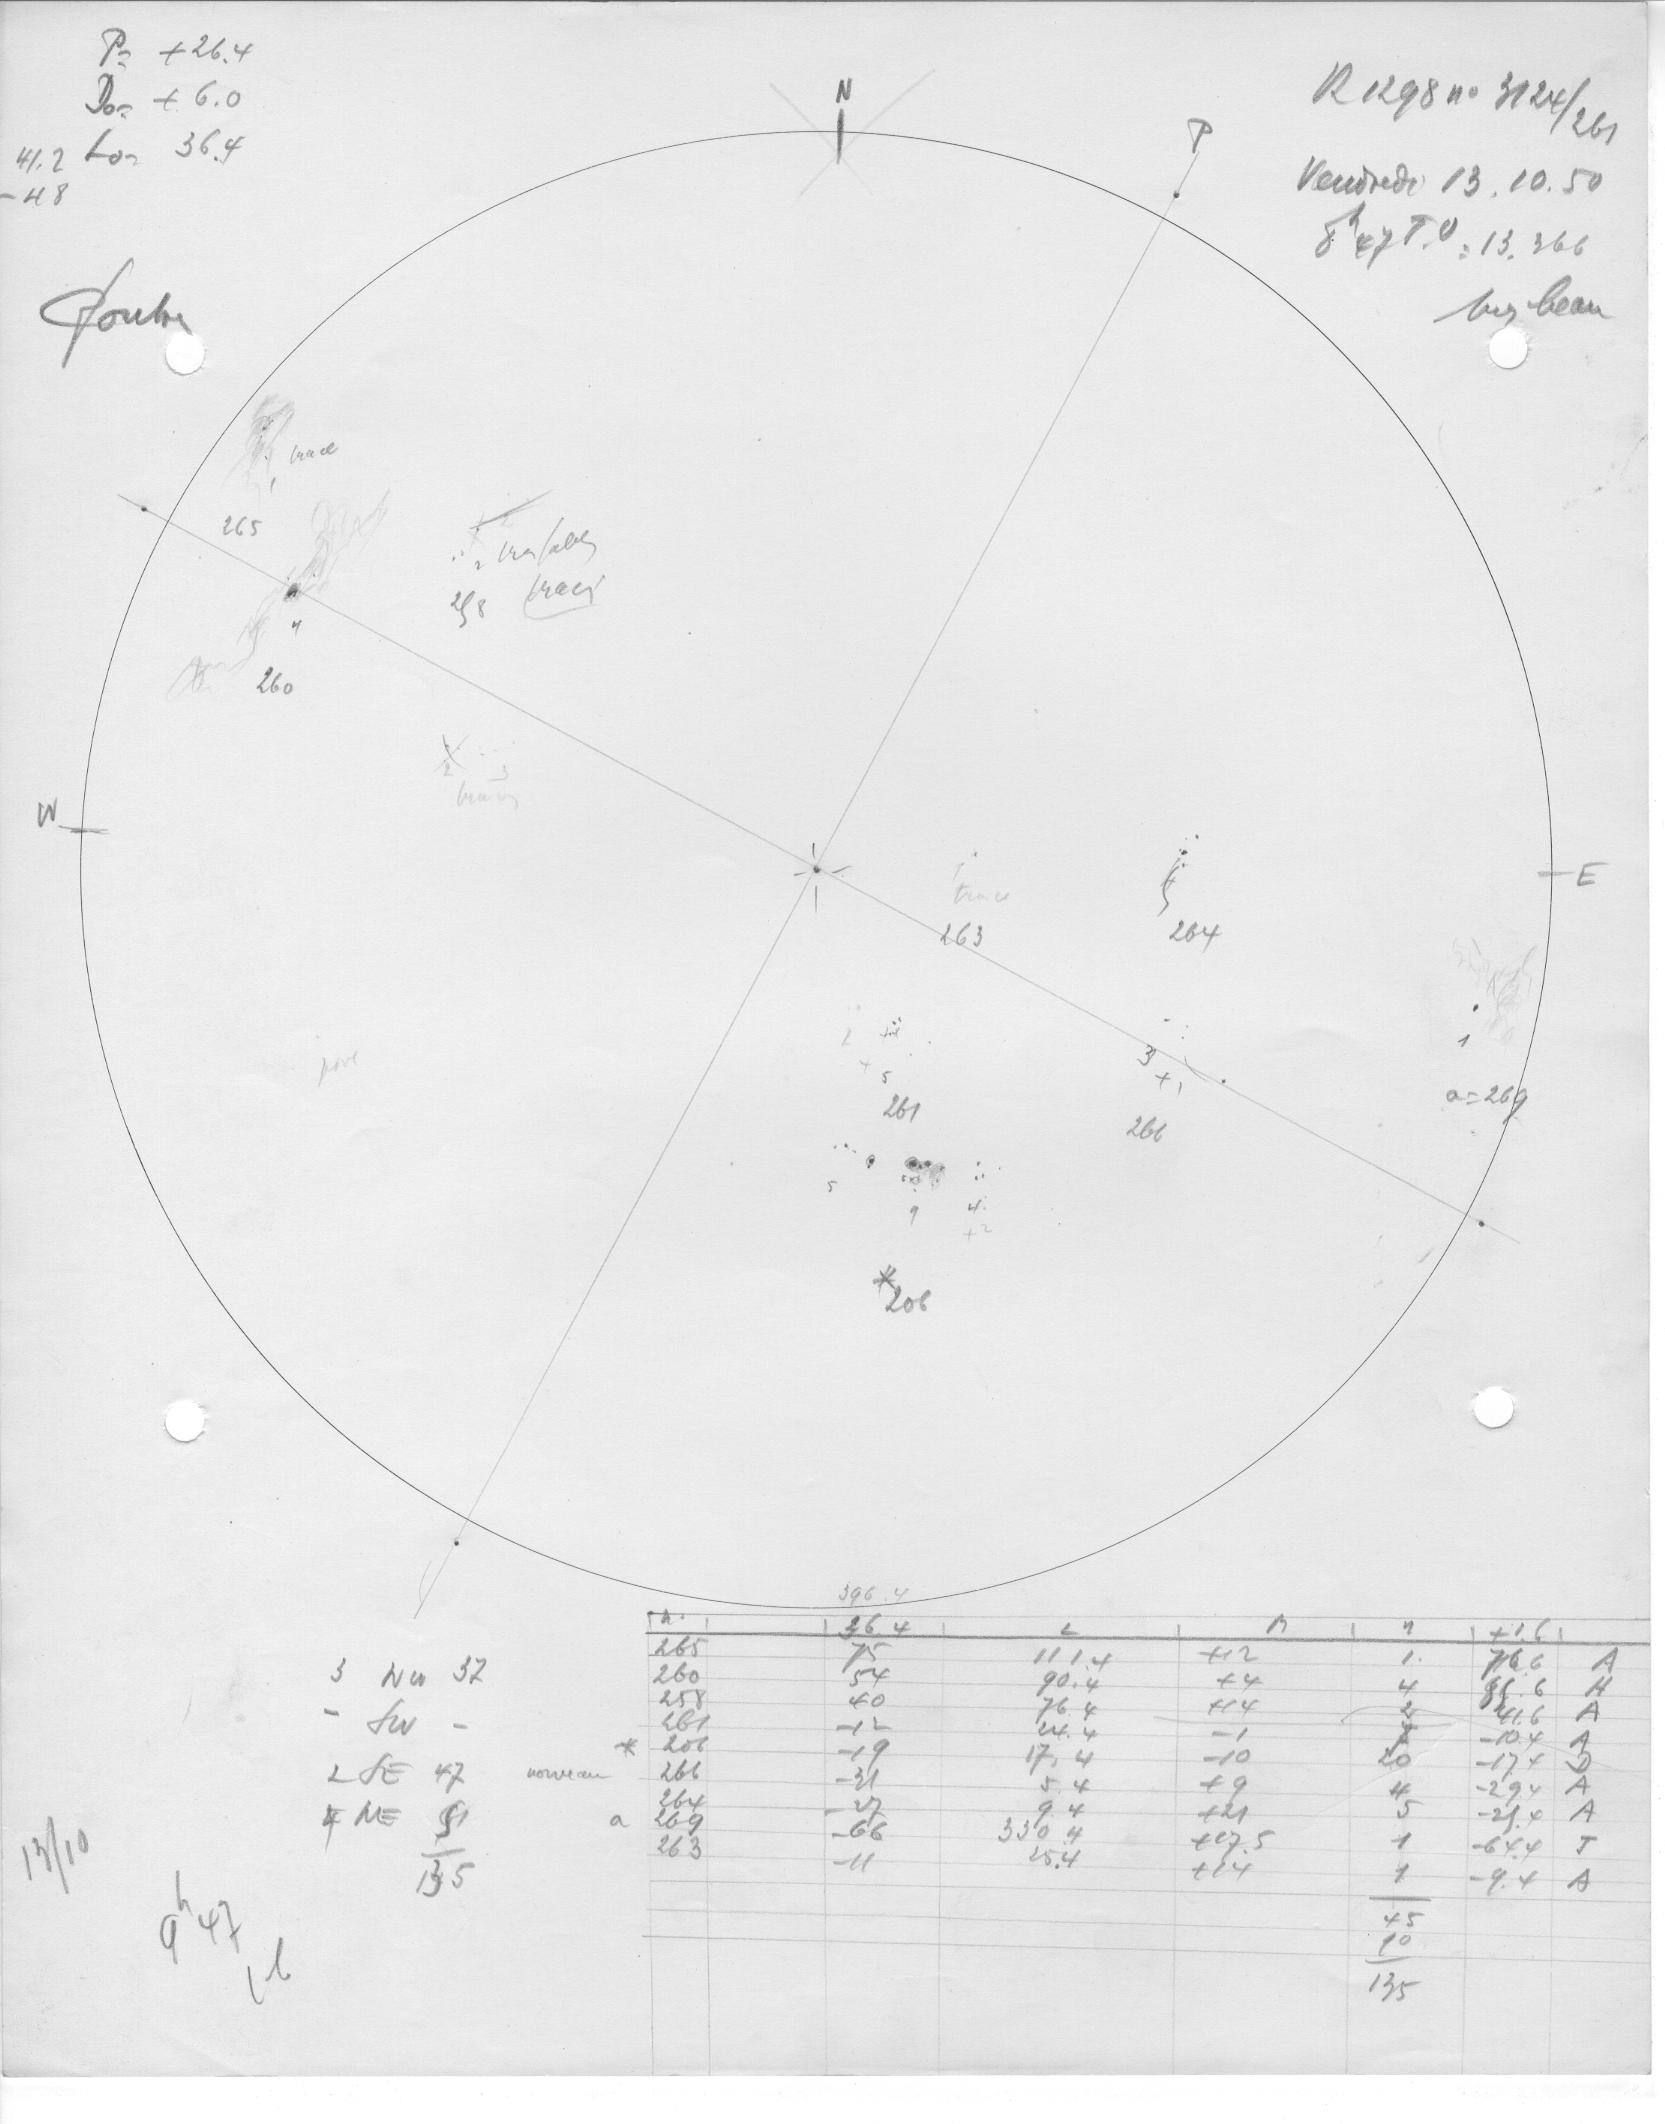 P= +26.4
Bo= +6.0
41.2 Lo= 36.4
-4.8
R 1298 no 3124/261
Vendredi 13.10.50
8h47 T.U = 13.366
très beau
N
P
W
E
trace
265
4
260
2 très faibles
traces
258
2 3
traces
pore
trace
263
264
3
+1
266
1
a=269
2
+
5
261
5
9
4
+2
*206
396.4
n. 36.4 L B n +1.6
265 75 111.4 +12 1 76.6 A
260 54 90.4 +4 4 H
258 40 76.4 +14 2 41.6 A
261 -12 24.4 -1 7 -10.4 A
* 206 -19 17.4 -10 20 -17.4 D
nouveau 266 -31 5.4 +9 4 -29.4 A
264 -27 9.4 +21 5 -25.4 A
a 269 -66 330.4 +17.5 1 -64.4 J
263 -11 25.4 +14 1 -9.4 A
45
90
135
3 NW 37
- SW -
2 SE 47
4 NE 51
135
13/10
9h47